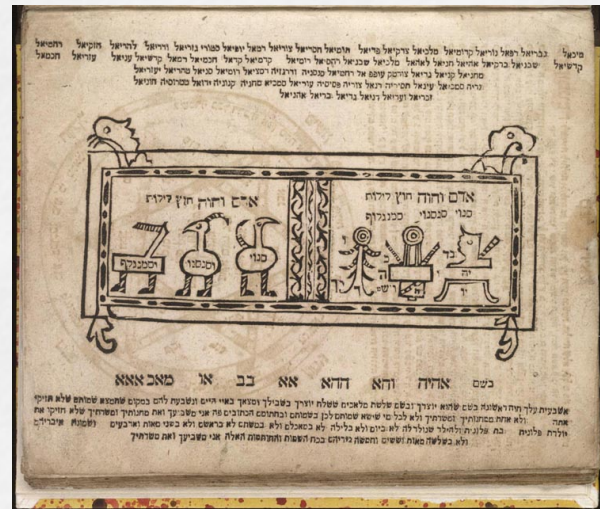 מיכאל גבריאל רפאל נוריאל קדומיאל מלכיאל צדקיאל פדיאל תומיאל חסדיאל צוריאל רמאל יופיאל גזריאל ודריאל להריאל חזקיאל רחמיאל
קדשיאל שבניאל ברקיאל אהיאל חניאל לאהאל מלכיאל שבניאל רומיאל קדמיאל קדאל חכמיאל רמאל קדשיאל עניאל עזריאל חכמאל
מחניאל קניאל גדיאל צורטק רחמיאל סנסניה ודרגזיה רומיאל סניאל טהריאל יעזריאל
נריה סמכאל עינאל תסיריה רנאל צוריה פסיסיה עוריאל סמכיא מחניה קנוניה ירואל טטרוסיה חוניאל
זכריאל ועריאל דניאל גדיאל בריאל אהניאל
אדם וחוה חוץ לילית
סנוי סנסנוי סמנגלוף
אדם וחוה חוץ לילית
סנוי
וסנסנוי
וסמנגלוף
יה
בשם אהיה והא ההא אא בב או מאב אאא
אשבעית עלך חוה ראשונה בשם שהוא יוצרך ובשם שלשה מלאכים ששלח יוצרך בשבילך ומצאך באיי הים ונשבעת להם במקום שתמצא שמותם שלא תזיקי
אתה ולא אחת ממחנותיך ומשרתיך ולא לכל מי שישא שמותם לכן בשמותם ובחתומם הכתובים פה אני משביעך ואת מחנותיך ומשרתיך שלא תזיקו את
יולדת פלונית בת פלונית ולהילד שנולד לה לא ביום ולא בלילה לא במאכלם ולא במשתם לא בראשם ולא בלבם ולא במאתים וארבעים ושמונה איבריהם
ולא בשלשה מאות וששים וחמשה גידיהם בכח השמות והחותמות האלה אני משביעך ואת משרתיך